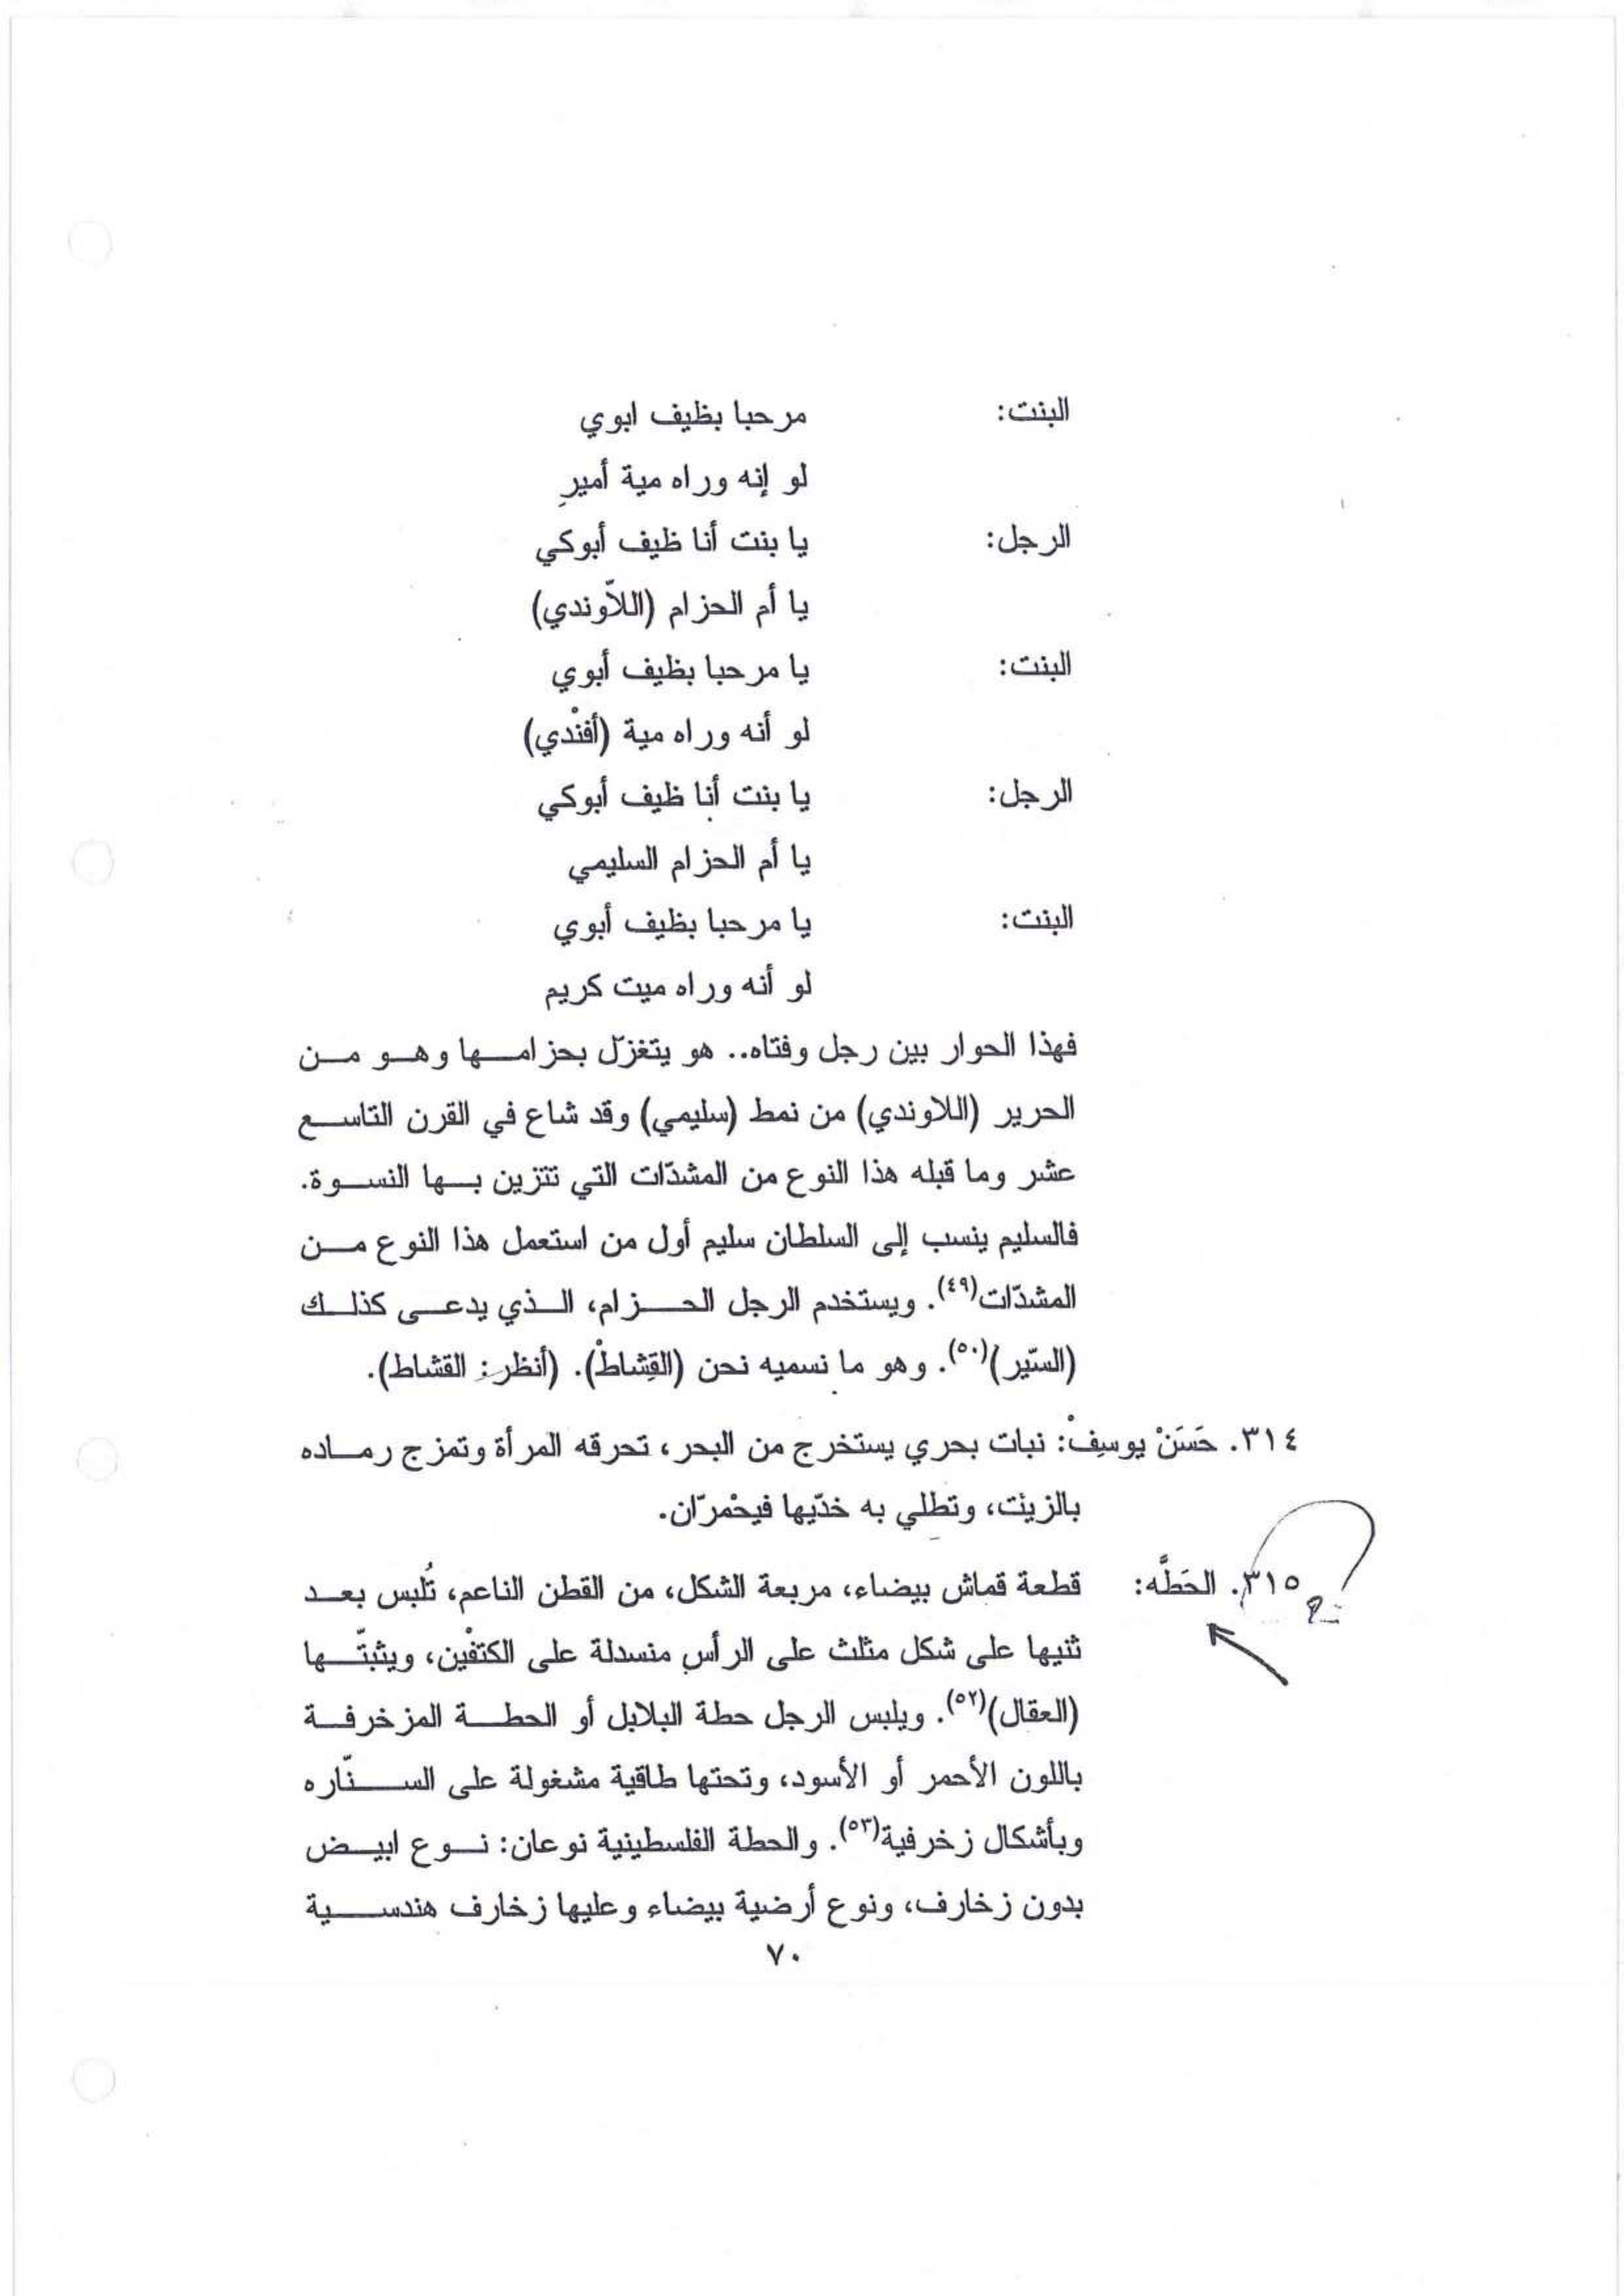 البنت: مرحبا بظيف ابوي
لو إنه وراه مية أمير
الرجل: يا بنت أنا ظيف أبوكي
يا أم الحزام (اللاّوندي)
البنت: يا مرحبا بظيف أبوي
لو أنه وراه مية (أفنْدي)
الرجل: يا بنت أنا ظيف أبوكي
يا أم الحزام السليمي
البنت: يا مرحبا بظيف أبوي
لو أنه وراه ميت كريم
فهذا الحوار بين رجل وفتاه.. هو يتغزّل بحزامها وهو من
الحرير (اللاوندي) من نمط (سليمي) وقد شاع في القرن التاسع
عشر وما قبله هذا النوع من المشدّات التي تتزين بها النسوة.
فالسليم ينسب إلى السلطان سليم أول من استعمل هذا النوع من
المشدّات(٤٩). ويستخدم الرجل الحزام، الذي يدعى كذلك
(السّير)(٥٠). وهو ما نسميه نحن (القِشاطْ). (أنظر: القشاط).
٣١٤. حَسَنْ يوسِفْ: نبات بحري يستخرج من البحر، تحرقه المرأة وتمزج رماده
بالزيْت، وتطلي به خدّيها فيحْمرّان.
٣١٥. الحَطَّه: قطعة قماش بيضاء، مربعة الشكل، من القطن الناعم، تُلبس بعد
ثنيها على شكل مثلث على الرأس منسدلة على الكتفْين، ويثبتّها
(العقال)(٥٢). ويلبس الرجل حطة البلابل أو الحطة المزخرفة
باللون الأحمر أو الأسود، وتحتها طاقية مشغولة على السنّاره
وبأشكال زخرفية(٥٣). والحطة الفلسطينية نوعان: نوع ابيض
بدون زخارف، ونوع أرضية بيضاء وعليها زخارف هندسية
٧٠